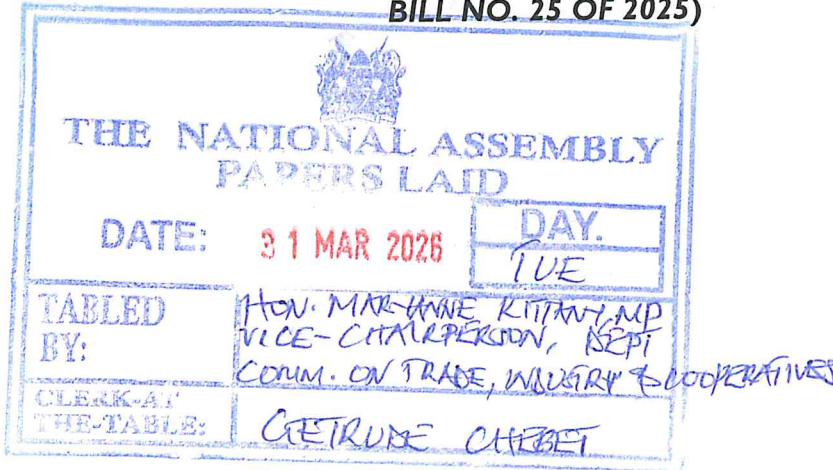 BILL NO. 25 OF 2025)
THE NATIONAL ASSEMBLY
PAPERS LAID
DATE: 31 MAR 2026
DAY.
TUE
TABLED BY:
HON. MARIANNE KITTANY, MP
VICE-CHAIRPERSON, DEPT
COMM. ON TRADE, INDUSTRY & COOPERATIVES
CLERK-AT THE-TABLE:
GETRUDE CHEBET